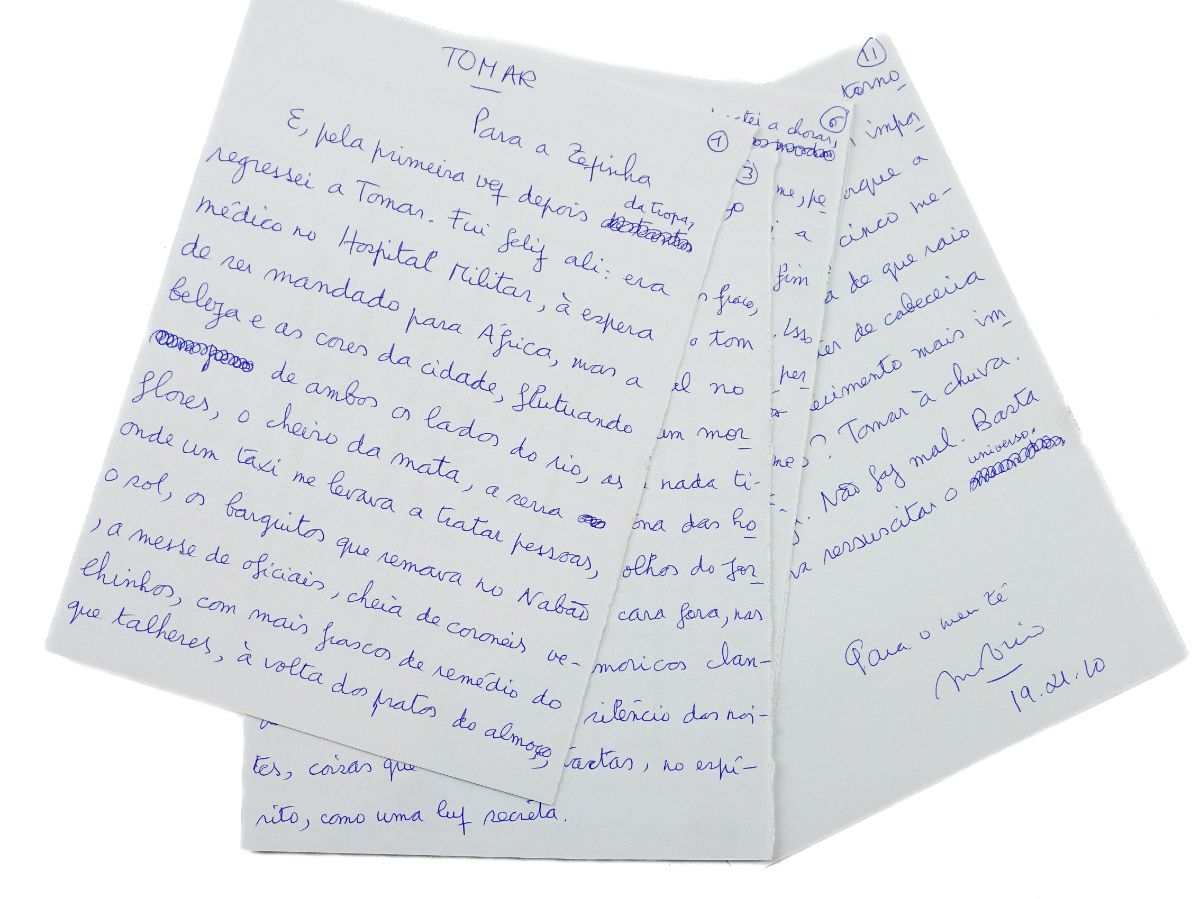 TOMAR
Para a Zefinha
1
E, pela primeira vez depois da tropa,
regressei a Tomar. Fui feliz ali: era
médico no Hospital Militar, à espera
de ser mandado para África, mas a
beleza e as cores da cidade, flutuando
de ambos os lados do rio, as
flores, o cheiro da mata, a serra
onde um taxi me levava a tratar pessoas,
o sol, os barquitos que remava no Nabão
, a messe de oficiais, cheia de coroneis ve-
lhinhos, com mais frascos de remédio do
que talheres, à volta dos pratos do almoço,
3
fraco,
o tom
el no
um mor
nada ti-
ona das ho
olhos do for
cara fora, nas
moricos clan-
silêncio das noi-
tes, coisas que
no espí-
rito, como uma luz secreta.
6
tei a chorar,
me, pe
i a
fim
. Isso
per
mes
11
torno
impor
orque a
cinco me-
a de que raio
de cabeceira
ecimento mais im
? Tomar à chuva.
. Não faz mal. Basta
ra ressuscitar o universo.
Para o meu té
19.21.10